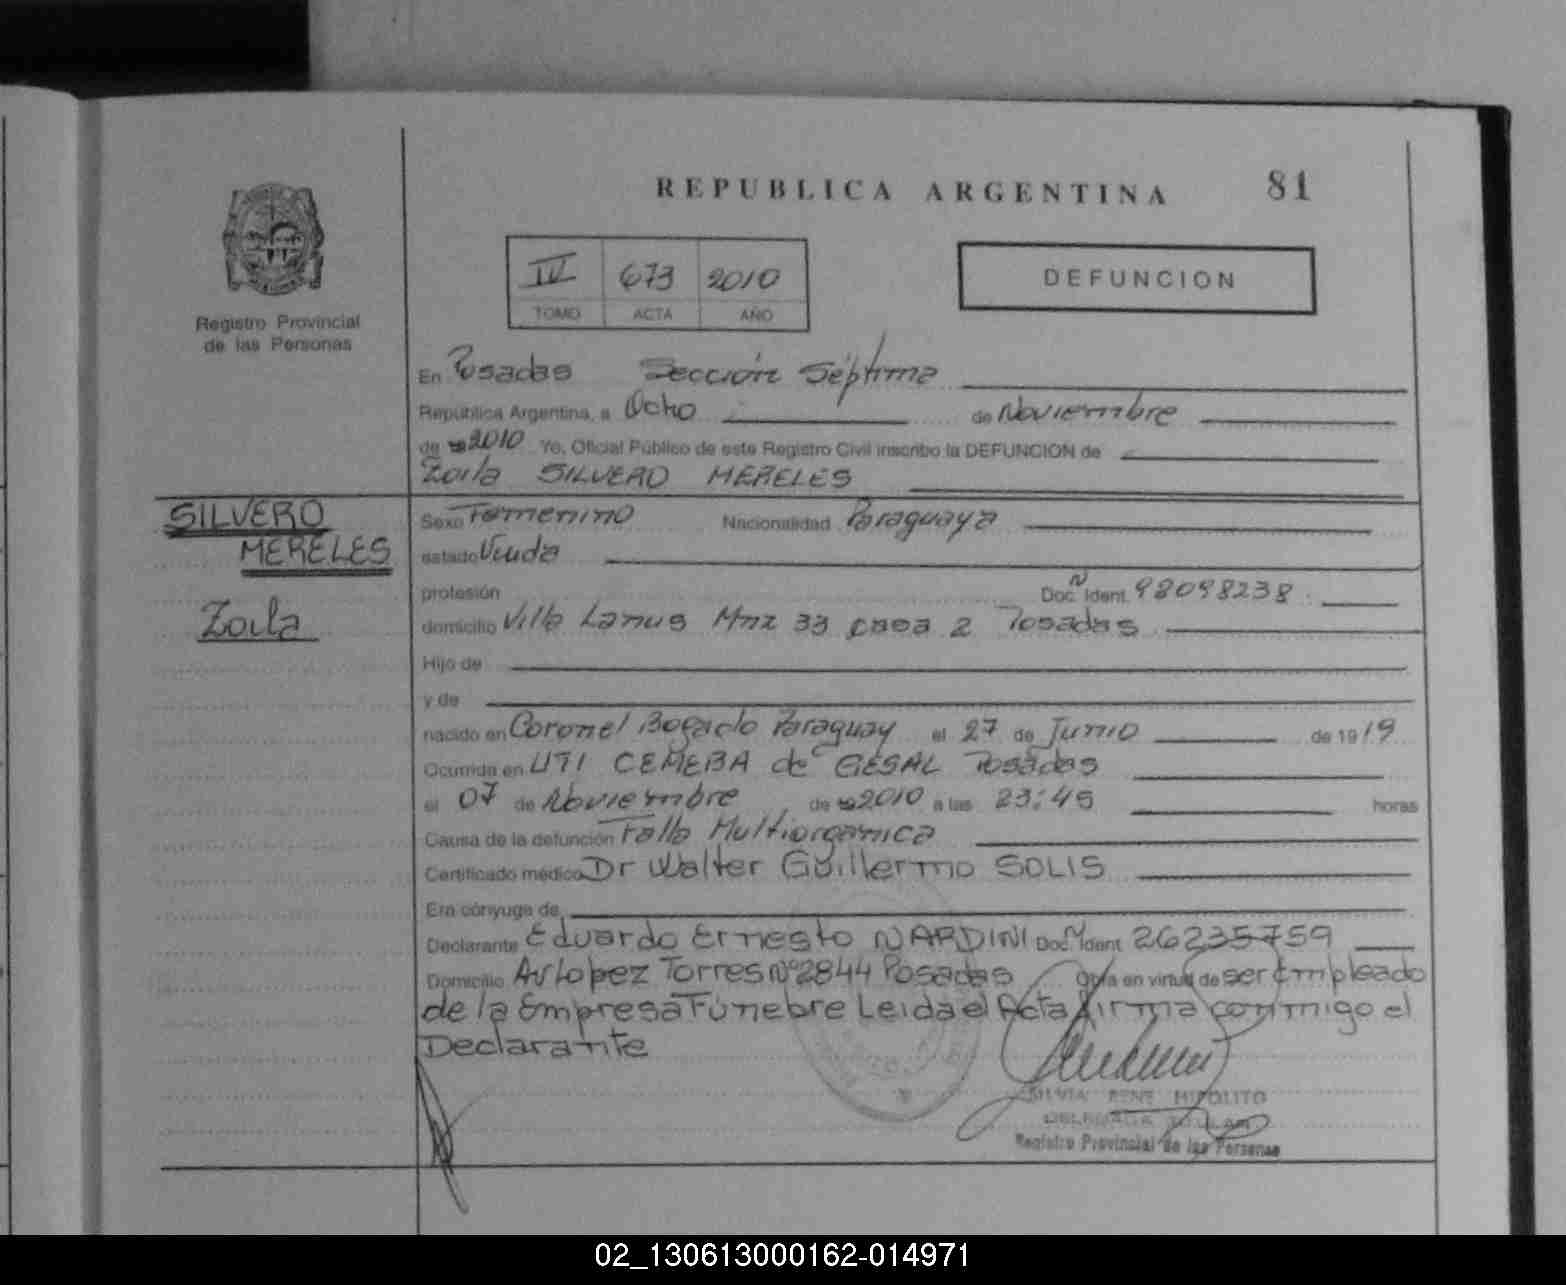 REPUBLICA ARGENTINA 81
IV 673 2010
TOMO ACTA AÑO
DEFUNCION
Registro Provincial
de las Personas
En Posadas Sección Séptima
República Argentina, a Ocho de Noviembre
de 2010 Yo, Oficial Público de este Registro Civil inscribo la DEFUNCION de
Zoila SILVERO MERELES
SILVERO
MERELES
Zoila
Sexo Femenino Nacionalidad Paraguaya
estado Viuda
profesión Doc. Ident. 92098238
domicilio Villa Lanus Mnz 33 casa 2 Posadas
Hijo de
y de
nacido en Coronel Bogado Paraguay el 27 de Junio de 1919
Ocurrida en UTI CEMEBA de GESAL Posadas
el 07 de Noviembre de 2010 a las 23:45 horas
Causa de la defunción Falla Multiorganica
Certificado médico Dr Walter Guillermo SOLIS
Era cónyuge de
Declarante Eduardo Ernesto NARDINI Doc. Ident 26235759
Domicilio Av Lopez Torres Nº 2844 Posadas Obra en virtud de ser Empleado
de la Empresa Fúnebre Leida el Acta firma conmigo el
Declarante
SILVIA RENE HIPOLITO
DELEGADA TITULAR
Registro Provincial de las Personas
02_130613000162-014971